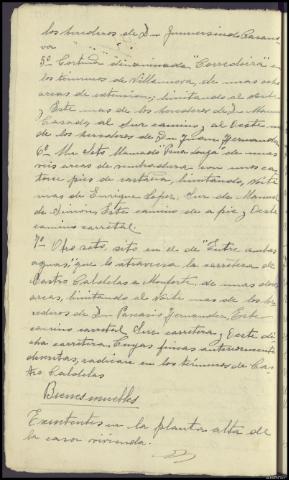 los herederos de Dn Gumersindo Casano
va
5º Cortiña denominada "Corredoira" en
los términos de Villanova, de unas ocho
areas de extension; limitando al Norte
y Este mas de los herederos de Dn Manuel
Casado, al Sur camino y al Oeste mas
de los herederos de Dn Juan Fernandez.
6º Un Soto, llamado de unas
seis areas de sembradura con unos ca
torce pies de castaño, limitando, Norte
mas de Enrique Lopez; Sur de Manuel
de Simon, Este camino de a pie y Oeste
camino carretal.
7º Otro soto, sito en el de "Entre ambas
aguas," que lo atraviesa la carretera de
Castro Caldelas a Monforte, de unas doce
areas, limitando al Norte mas de los he
rederos de Dn Pascasio Fernandez, Este
camino carretal, Sur carretera, y Oeste di
cha carretera. Cuyas fincas anteriormente
descritas, radican en los términos de Cas
tro Caldelas
Bienes muebles
Existentes en la planta alta de
la casa vivienda.